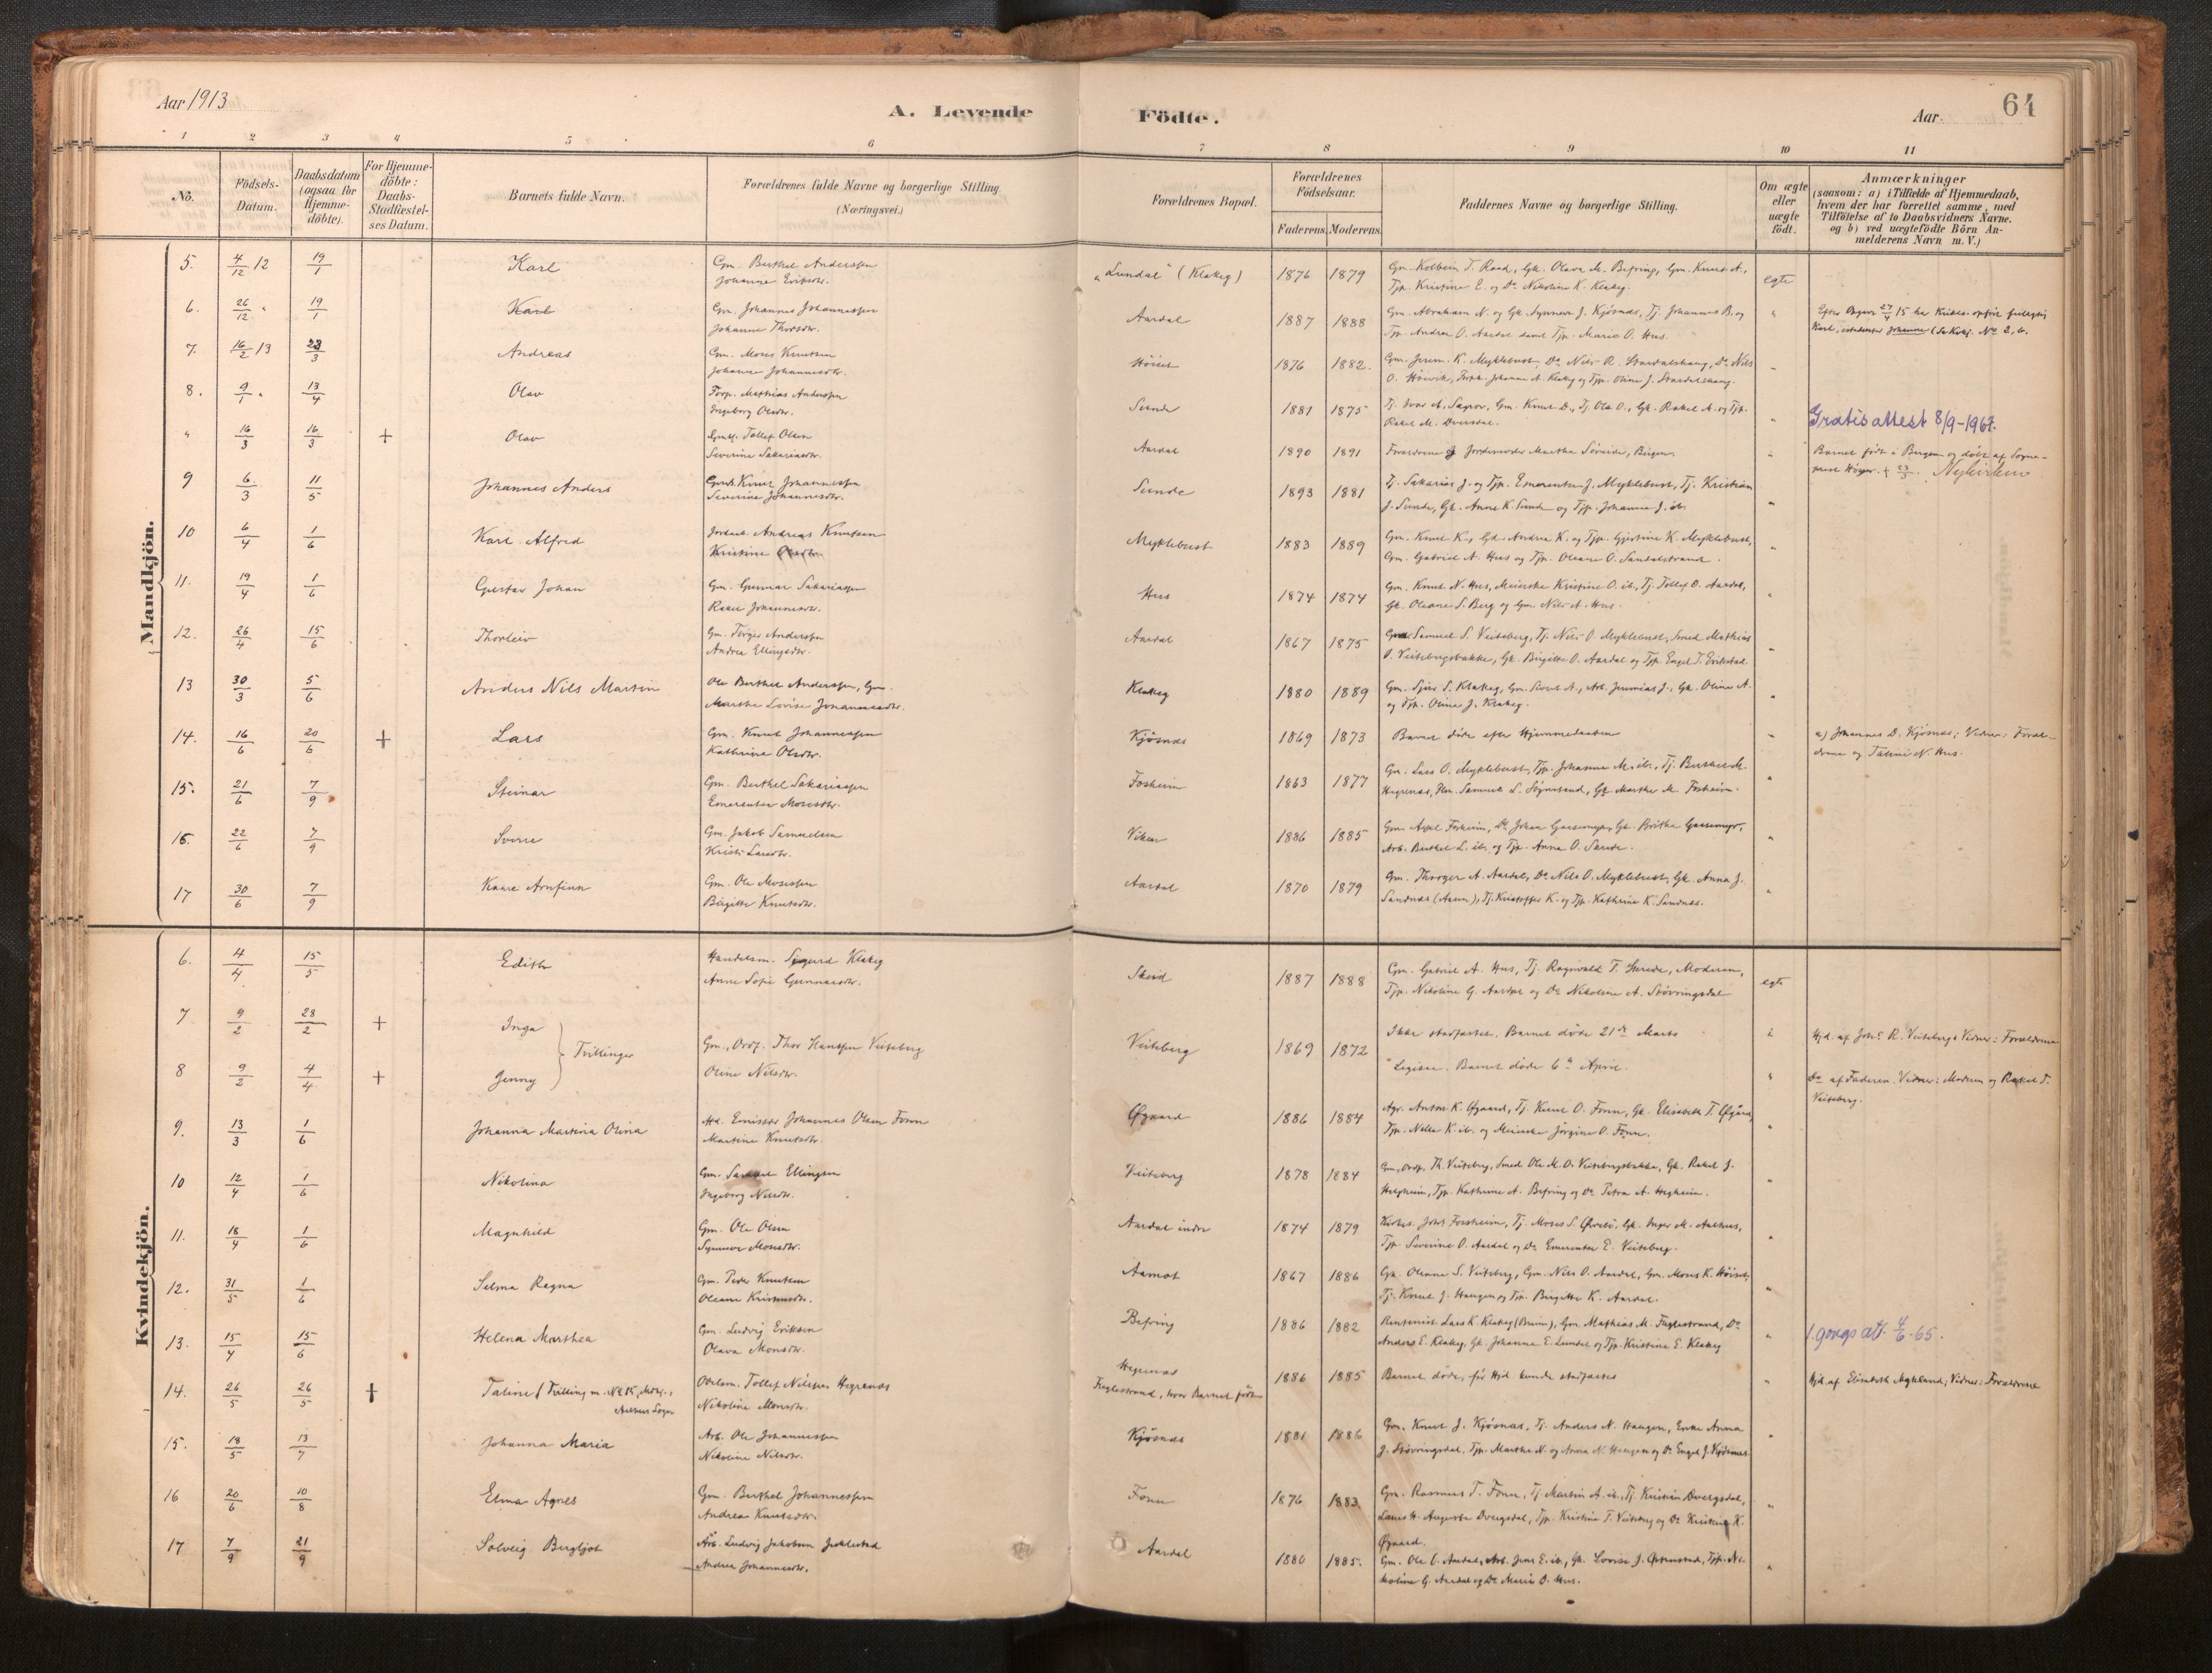 Aar 1913
A. Levende Födte.
Aar.
64
1 2 3 4 5 6 7 8 9 10 11
No.
Födsels-Datum.
Daabsdatum (ogsaa for Hjemme-döbte).
For Hjemme-döbte: Daabs-Stadfæstel-ses Datum.
Barnets fulde Navn.
Forældrenes fulde Navne og borgerlige Stilling.
(Næringsvei.)
Forældrenes Bopæl.
Forældrenes Födselsaar.
Faderens. Moderens.
Faddernes Navne og borgerlige Stilling.
Om ægte eller uægte födt.
Anmærkninger
(saasom: a) i Tilfælde af Hjemmedaab, hvem der har forrettet samme, med Tilföielse af to Daabsvidners Navne. og b) ved uægtefödte Börn An-melderens Navn m. V.)
Mandkjön.
5. 4/12 12 19/1 Karl Gm. Berthel Anderssen "Lundal" (Klakeg) 1876 1879 Gm. Kolbein T. Raad, Gk. Olava M. Befring, Gm. Knut A.,
Johanne Eriksdtr. Tjp. Kristine E. og Do Nikoline K. Klakeg. egte
6. 26/12 " 19/1 Karl Gm. Johannes Johannessen Aardal 1887 1888 Gm. Abraham N. og Gk. Synneva J. Kjösnes, Tj. Johannes B. og "
Johanne Thorsdtr. Tjp. Andrea O. Aardal samt Tjp. Marie O. Hus.
7. 16/2 13 23/3 Andreas Gm. Moses Knutsen Höiset 1876 1882. Gm. Jerem. K. Myklebust, Do Nils R. Stardalshaug, Do Nils
Johanne Johannesdtr. O. Höivik, Johanne A. Klakeg og Tjp. Oline J. Stardalshaug. "
8. 9/1 " 13/4 Olav Forp. Mathias Anderssen Sunde 1881 1875 Tj. Ivar A. Gm. Knut D., Tj. Ola O., Gk. Rakel A. og Tjp.
Ingeborg Olsdtr. Rakel M. " Gratis attest 8/9-1967.
" 16/3 16/3 + Olav Tollef Olsen Aardal 1890 1891 Forældrene og Jordemoder Martha Bergen. " Barnet født i Bergen og døbt af Sogne-
Severine Sakariasdtr. 23/3. Nykirken
9 6/3 11/5 Johannes Anders Knut Johannessen Sunde 1893 1881 Tj. Sakarias J. og Tjp. Emerentse J. Myklebust, Tj. Kristian
Severine Johannesdtr. J. Sunde, Gk. Anne K. Sunde og Tjp. Johanna J. ib. "
10 6/4 1/6 Karl Alfred Andreas Knutsen Myklebust 1883 1889 Gm. Knut K., Gk. Andrea K. og Tjp. Gjertine K. Myklebust,
Kristine Gm. Gabriel A. Hus og Tjp. Oleane O. Sandalstrand. "
11. 19/4 1/6 Gustav Johan Gm. Gunnar Sakariassen Hus 1874 1874 Gm. Knut N. Hus, Meierske Kristine O. ib., Tj. Tollef O. Aardal,
Rakel Johannesdtr. Gk. Oleane S. Berg og Gm. Nils A. Hus. "
12. 26/4 15/6 Thorleiv Gm. Torger Anderssen Aardal 1867 1875 Samuel S. Veiteberg, Tj. Nils O. Myklebust, Smed Mathias
Andrea Ellingsdtr. O. Veitebergsbakke, Gk. Birgitte O. Aardal og Tjp. Engel T. "
13 30/3 5/6 Anders Nils Martin Ole Berthel Anderssen, Gm. Klakeg 1880 1889 Gm. Sjur S. Klakeg, Gm. Sivert A., Arb. Jeremias J., Gk. Oline A.
Marthe Lovise Johannesdtr. og Tjp. Oline J. Klakeg. "
14. 16/6 20/6 + Lars Gm. Knut Johannessen Kjösnes 1869 1873 Barnet døde efter Hjemmedaaben " a) Johannes D. Kjösnes; Vidner: Foræl-
Kathrine Olsdtr. drene og Taline N. Hus.
15. 21/6 7/9 Steinar Gm. Berthel Sakariassen Fosheim 1863 1877 Gm. Lars O. Myklebust, Tjp. Johanne M. ib., Tj. Berthel M.
Emerentse Mosesdtr. Hegrenes, Samuel L. Sögnesand, Gk. Marthe M. Fosheim. "
16. 22/6 7/9 Sverre Gm. Jakob Samuelsen Viken 1886 1885 Gm. Axel Fosheim, Do Johan Gaasemyr, Gk. Britha Gaasemyr,
Kristi Larsdtr. Arb. Berthel L. ib. og Tjp. Anna O. Skrede. "
17 30/6 7/9 Kaare Arnfinn Gm. Ole Mosessen Aardal 1870 1879 Gm. Thorger A. Aardal, Do Nils O. Myklebust, Gk. Anna J.
Birgitte Knutsdtr. Sandnes (Aasen), Tj. Kristoffer K. og Tjp. Kathrine K. Sandnes. "
Kvindekjön.
6. 4/4 15/5 Edith Handelsm. Sigurd Klakeg Skeid 1887 1888 Gm. Gabriel A. Hus, Tj. Ragnvald T. Skrede, Moderen,
Anne Sofie Gunnarsdtr. Tjp. Nikoline G. Aardal og Do Nikoline A. Stövringsdal egte
7 9/2 28/2 + Inga } Tvillinger Gm., Ordf. Thor Hanssen Veiteberg Veiteberg 1869 1872 Ikke stadfæstet. Barnet døde 21de Marts " Hjd. af Johs. R. Veiteberg. Vidner: Forældrene
8 9/2 4/4 + Jenny Oline Nilsdtr. Ligesaa. Barnet døde 6te April. " Do af Faderen. Vidner: Moderen og Rakel T. Veiteberg.
9. 13/3 1/6 Johanna Martina Olina Emissær Johannes Olsen Fonn Øygaard 1886 1884 Agr. Anton K. Øygaard, Tj. Knut O. Fonn, Gk. Elisabeth T. Øygård,
Martine Knutsdtr. Tjp. Nella K. ib. og Meierske Jörgine O. Fonn. "
10 12/4 1/6 Nikolina Gm. Samuel Ellingsen Veiteberg 1878 1884 Gm., Ordf. Th. Veiteberg, Smed Ole M. O. Veitebergsbakke, Gk. Rakel J.
Ingeborg Nilsdtr. Helgheim, Tjp. Kathrine A. Befring og Do Petra A. Hegheim. "
11. 18/4 1/6 Magnhild Gm. Ole Olsen Aardal indre 1874 1879 Johs Forsheim, Tj. Moses S. Øvrebö, Gk. Inger M. Aalhus,
Synneve Monsdtr. Tjp. Severine O. Aardal og Do Emerentse E. Veiteberg. "
12. 31/5 1/6 Selma Ragna Gm. Peder Knutsen Aamot 1867 1886 Gk. Oleane S. Veiteberg, Gm. Nils O. Aardal, Gm. Moses K. Höiset,
Oleane Tj. Knut J. Haugen og Tjp. Birgitte K. Aardal. "
13. 15/4 15/6 Helena Marthea Gm. Ludvig Eriksen Befring 1886 1882 Rentenist Lars K. Klakeg (Bruun), Gm. Mathias M. Fuglestrand, Do
Olava Monsdtr. Anders E. Klakeg, Gk. Johanne E. Lundal og Tjp. Kristine E. Klakeg " 1.gongs att. 4/6-65.
14. 26/5 26/5 + Taline (Tvilling m. No 15, Mdkj., Aalhus Sogn) Odelsm. Tollef Nilssen Hegrenes Hegrenes 1886 1885 Barnet døde, før Hjd. kunde stadfæstes " Hjd. af Elisabeth Myklend; Vidner: Forældrene
Nikoline Monsdtr. Fuglestrand, hvor Barnet født
15. 18/5 13/7 Johanna Maria Arb. Ole Johannessen Kjösnes 1881 1886 Gm. Knut J. Kjösnes, Tj. Anders N. Haugen, Enke Anna
Nikoline Nilsdtr. J. Stövringsdal, Tjp. Marthe N. og Anna N. Haugen og Do Engel J. Kjösnes. "
16 20/6 10/8 Elma Agnes Gm. Berthel Johannessen Fonn 1876 1883 Gm. Rasmus T. Fonn, Tj. Martin A. ib., Tj. Kristian Dvergsdal,
Andrea Knutsdtr. Augusta Dvergsdal, Tjp. Kristine T. Veiteberg og Do Kristine K. Øygaard. "
17 7/9 21/9 Solveig Bergljot Arb. Ludvig Jakobsen Aardal 1880 1885. Gm. Ole O. Aardal, Arb. Jens E. ib., Gk. Lovise J. Tjp. Ni-
Andrea Johannesdtr. koline G. Aardal og Do Marie O. Hus. "